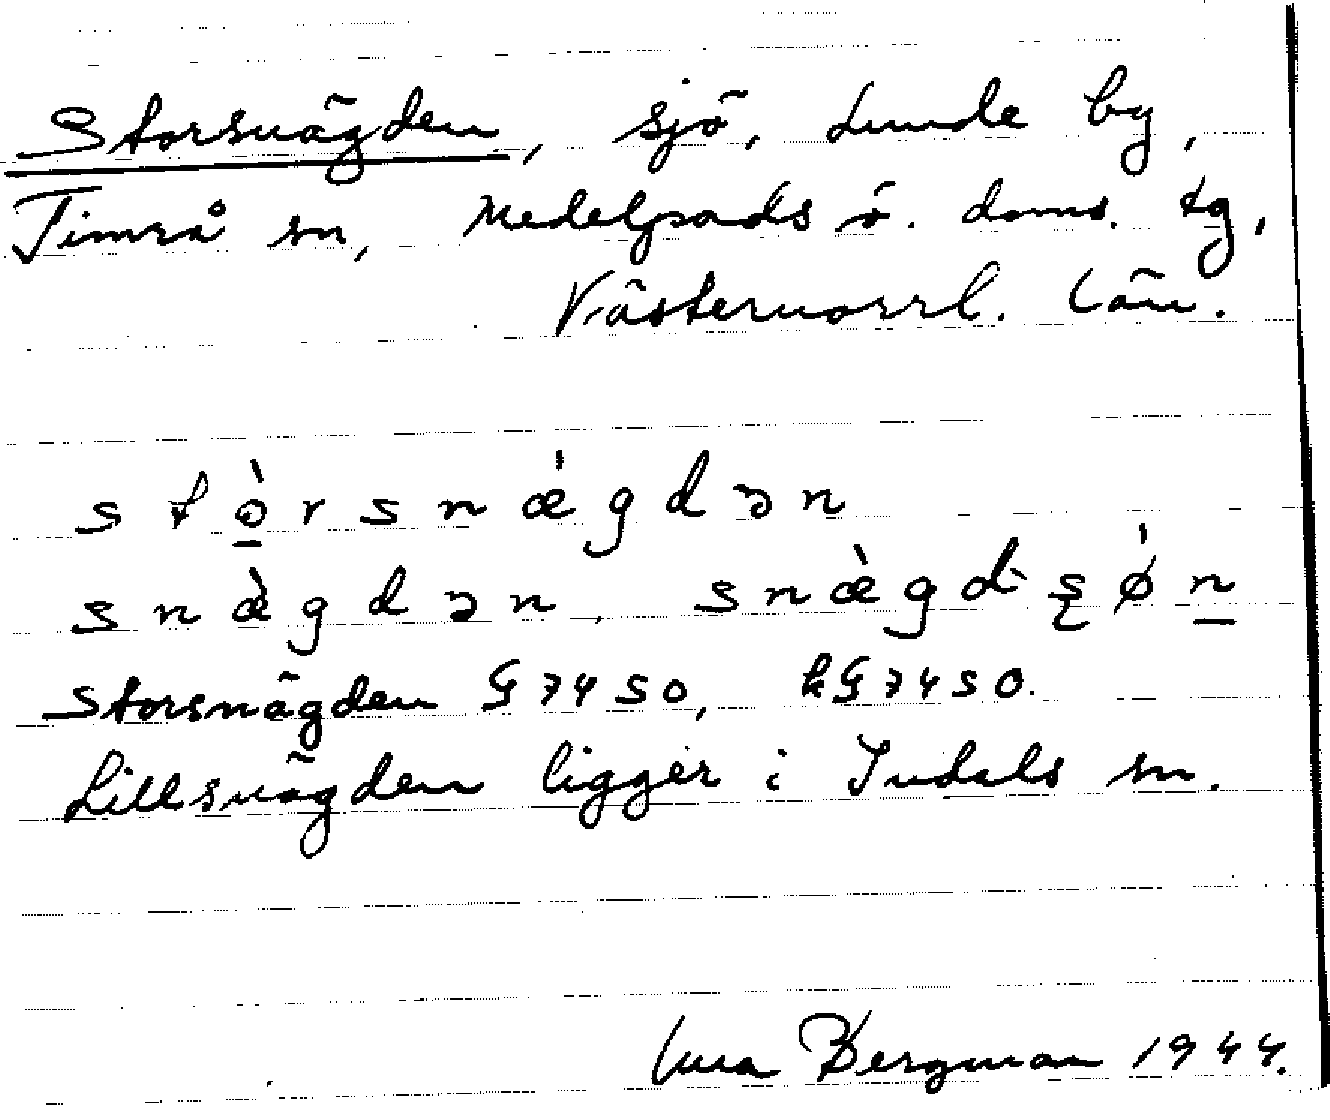 Storsnägden, sjö, Lunde by,
Timrå sn, Medelpads ö. doms. tg,
Västernorrl. län.
stò̠rsnǽgdən
snæ̀gdən, snæ̀gdşǿn̠
Storsnägden G 7450, kG7450.
Lillsnägden ligger i Indals sn.
Bergman 1944.